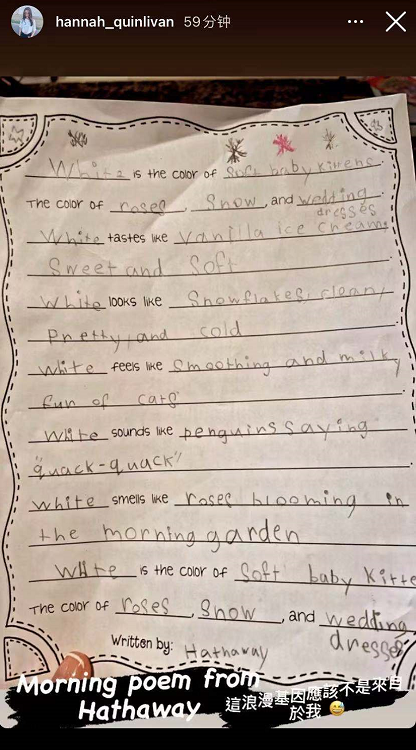 hannah_quinlivan 59分钟
White is the color of soft baby kittens
The color of roses, Snow, and wedding
dresses
White tastes like Vanilla ice cream,
Sweet and Soft
White looks like Snowflakes, clean,
Pretty, and cold
White feels like Smoothing and milky
fun of cats
White sounds like penguins saying
"quack-quack"
White smells like roses blooming in
the morning garden
White is the color of Soft baby kitte
The color of roses, Snow, and wedding
dresses
Written by: Hathaway
Morning poem from
Hathaway
這浪漫基因應該不是來自
於我 😅